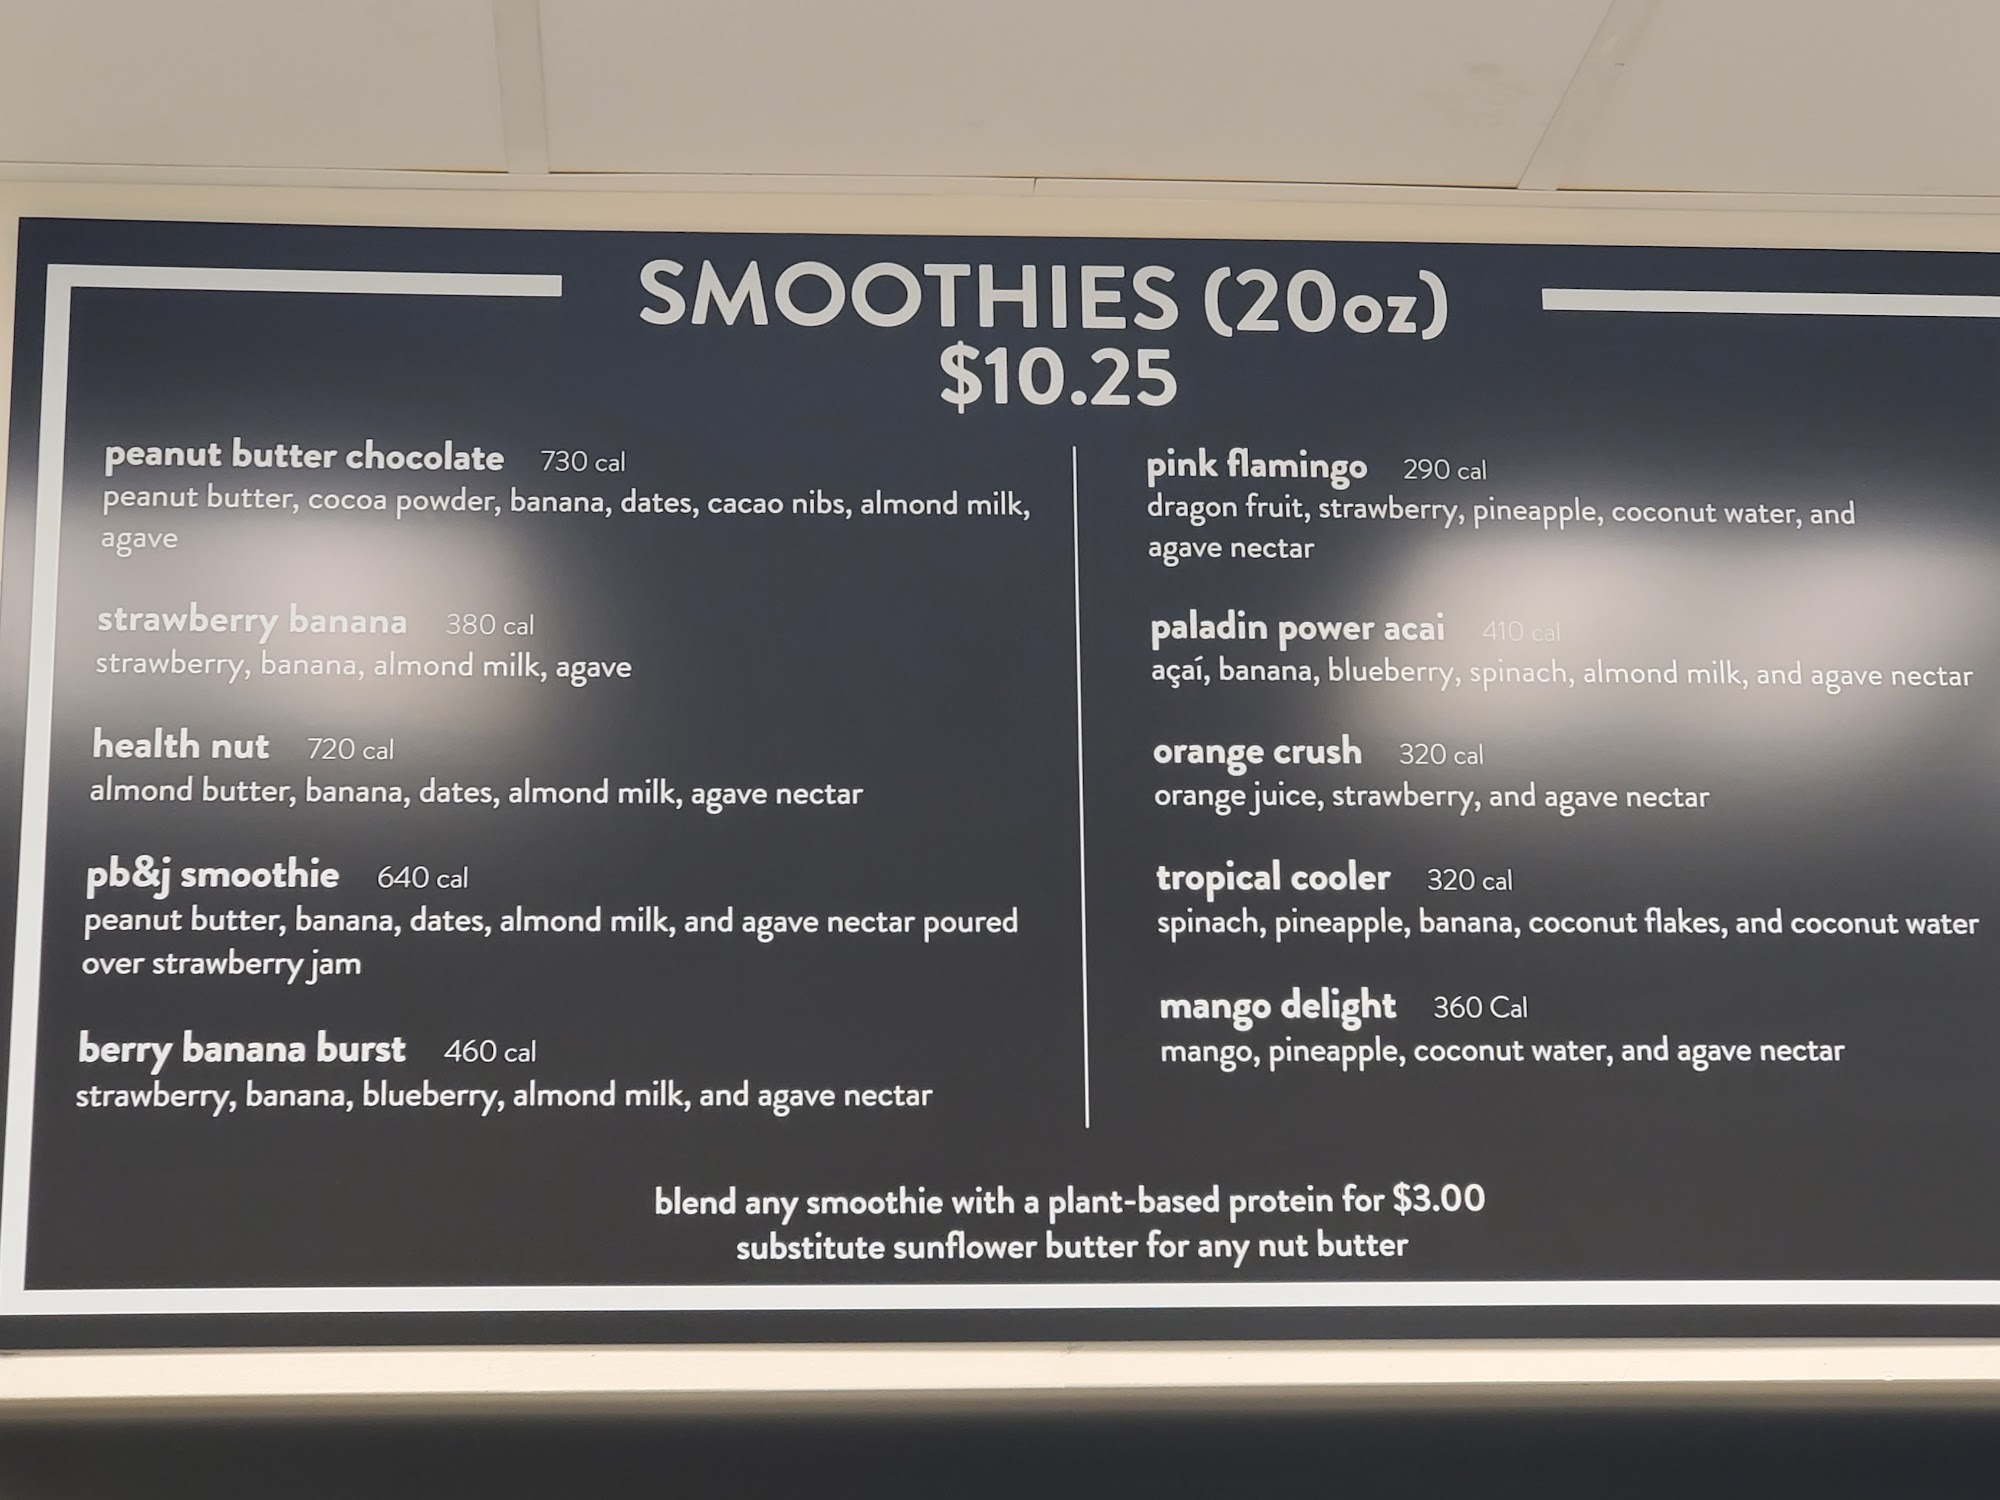 SMOOTHIES (20oz)
$10.25
peanut butter chocolate 730 cal
peanut butter, cocoa powder, banana, dates, cacao nibs, almond milk,
agave
strawberry banana 380 cal
strawberry, banana, almond milk, agave
health nut 720 cal
almond butter, banana, dates, almond milk, agave nectar
pb&j smoothie 640 cal
peanut butter, banana, dates, almond milk, and agave nectar poured
over strawberry jam
berry banana burst 460 cal
strawberry, banana, blueberry, almond milk, and agave nectar
pink flamingo 290 cal
dragon fruit, strawberry, pineapple, coconut water, and
agave nectar
paladin power acai 410 cal
açaí, banana, blueberry, spinach, almond milk, and agave nectar
orange crush 320 cal
orange juice, strawberry, and agave nectar
tropical cooler 320 cal
spinach, pineapple, banana, coconut flakes, and coconut water
mango delight 360 Cal
mango, pineapple, coconut water, and agave nectar
blend any smoothie with a plant-based protein for $3.00
substitute sunflower butter for any nut butter